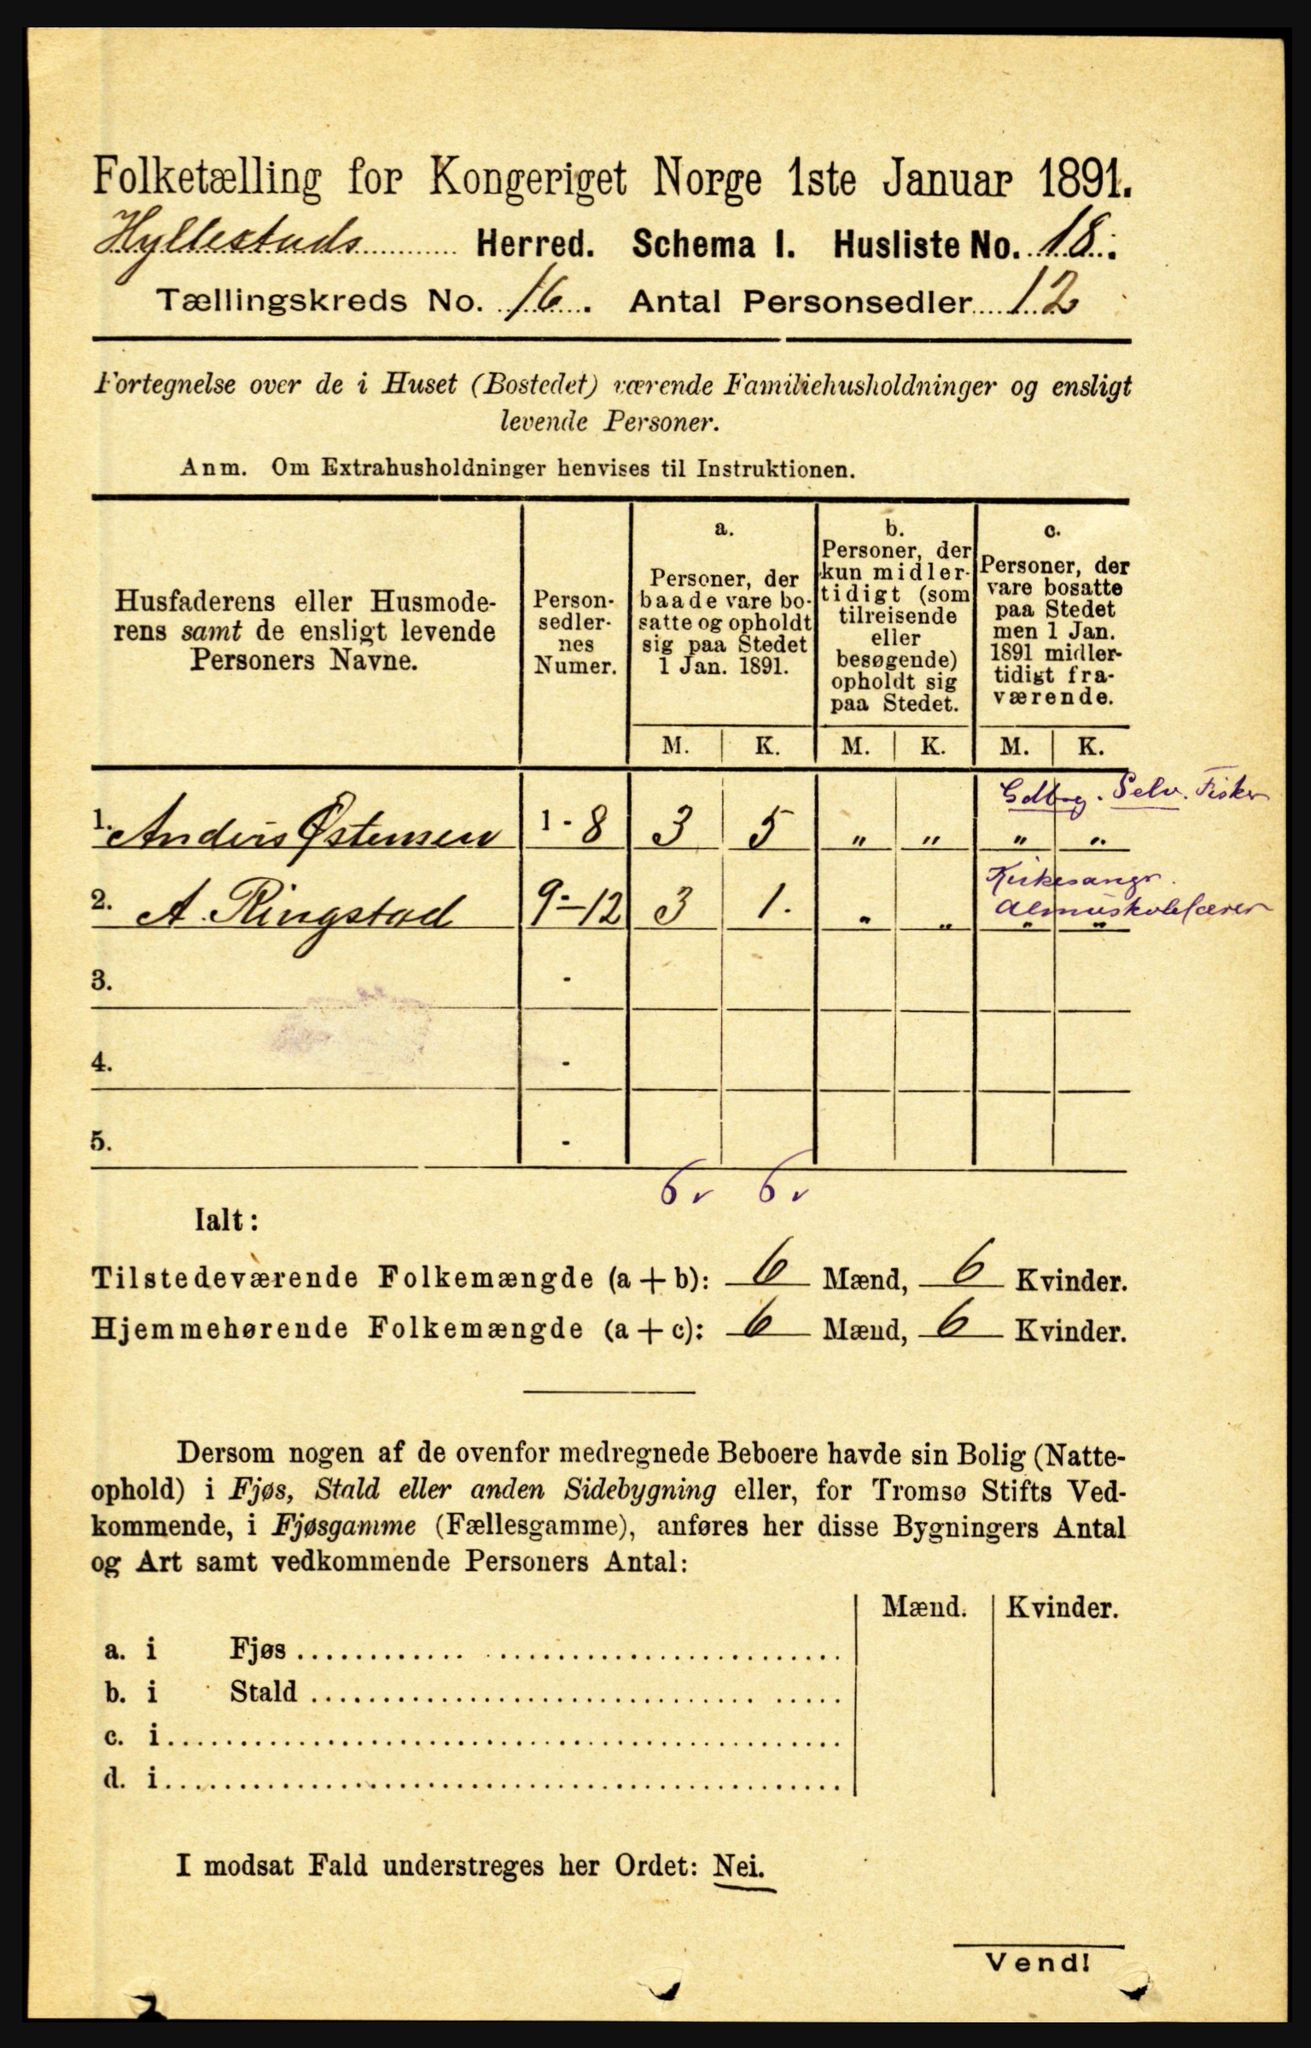 Folketælling for Kongeriget Norge 1ste Januar 1891.
Hyllestads Herred. Schema I. Husliste No. 18.
Tællingskreds No. 16. Antal Personsedler 12
Fortegnelse over de i Huset (Bostedet) værende Familiehusholdninger og ensligt
levende Personer.
Anm. Om Extrahusholdninger henvises til Instruktionen.
Husfaderens eller Husmode-
rens samt de ensligt levende
Personers Navne.
Person-
sedler-
nes
Numer.
a.
Personer, der
baade vare bo-
satte og opholdt
sig paa Stedet
1 Jan. 1891.
b.
Personer, der
kun midler-
tidigt (som
tilreisende
eller
besøgende)
opholdt sig
paa Stedet.
c.
Personer, der
vare bosatte
paa Stedet
men 1 Jan.
1891 midler-
tidigt fra-
værende.
M. K. M. K. M. K.
Gdbrg. Selv. Fisker
1. Anders Østensen 1 - 8 3 5 „ „ „ „
Kirkesangr.
Almuskolelærer
2. A. Ringstad 9 - 12 3 1. „ „ „ „
3. -
4. -
5. -
6 v 6 v
Ialt:
Tilstedeværende Folkemængde (a + b): 6 Mænd, 6 Kvinder.
Hjemmehørende Folkemængde (a + c): 6 Mænd, 6 Kvinder.
Dersom nogen af de ovenfor medregnede Beboere havde sin Bolig (Natte-
ophold) i Fjøs, Stald eller anden Sidebygning eller, for Tromsø Stifts Ved-
kommende, i Fjøsgamme (Fællesgamme), anføres her disse Bygningers Antal
og Art samt vedkommende Personers Antal:
Mænd. Kvinder.
a. i Fjøs
b. i Stald
c. i
d. i
I modsat Fald understreges her Ordet: Nei.
Vend!